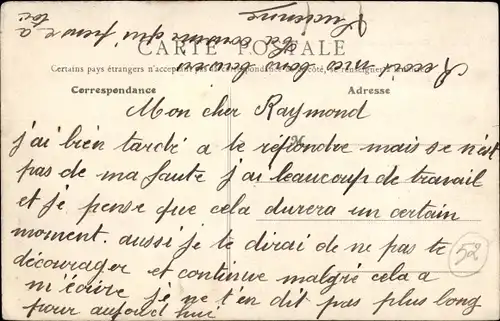 CARTE POSTALE
Certains pays étrangers n'acceptent pas de correspondance de ce côté, se renseigner à la poste
Correspondance
Adresse
Mon cher Raymond
j'ai bien tardé a te répondre mais se n'est
pas de ma faute j'ai beaucoup de travail
et je pense que cela durera un certain
moment. aussi je te dirai de ne pas te
décourager et continue malgré cela a
m'écrire je ne t'en dit pas plus long
pour aujourd'hui
52
Recoit mes bons baisers
de ta cousine qui pense a
toi
Lucienne